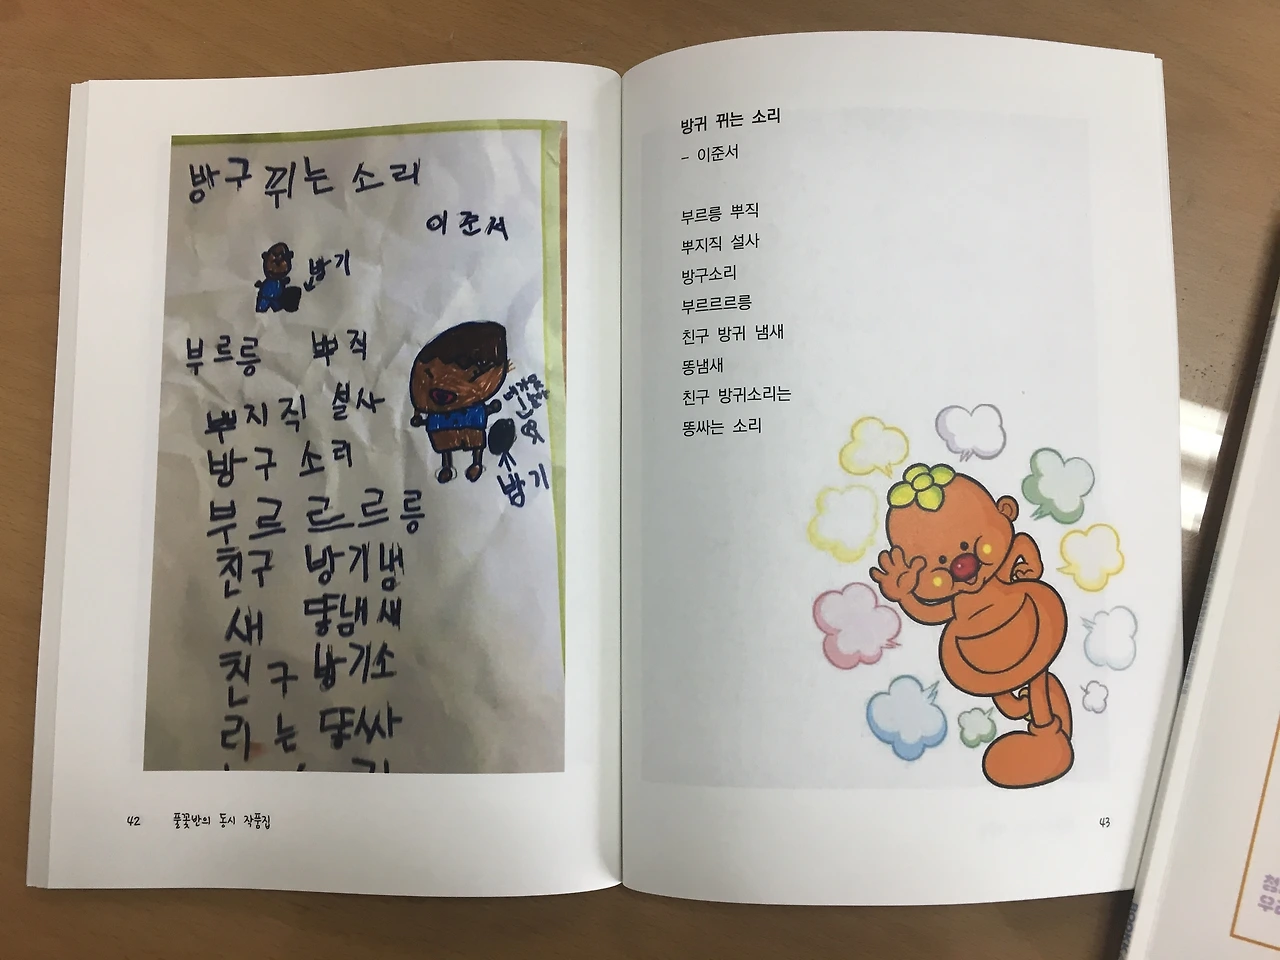 방구 뀌는 소리
이준서
방기
부르릉 뿌직
뿌지직 설사
방구 소리
부르르르릉
친구 방기냄
새 똥냄새
친구 방기소
리는 똥싸
방기
42 풀꽃반의 동시 작품집
방귀 뀌는 소리
- 이준서
부르릉 뿌직
뿌지직 설사
방구소리
부르르르릉
친구 방귀 냄새
똥냄새
친구 방귀소리는
똥싸는 소리
43